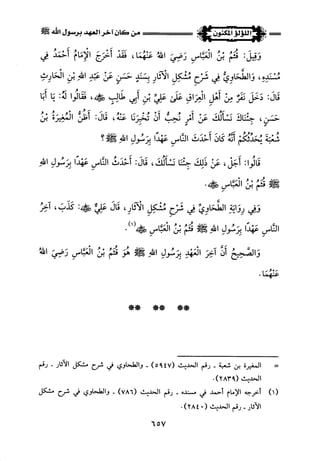 اللؤلؤ المكنون
من كان آخر العهد برسول الله ﷺ
وَقِيلَ: قُثَمُ بْنُ الْعَبَّاسِ رَضِيَ اللهُ عَنْهُمَا، فَقَدْ أَخْرَجَ الْإِمَامُ أَحْمَدُ فِي
مُسْنَدِهِ، وَالطَّحَاوِيُّ فِي شَرْحِ مُشْكِلِ الْآثَارِ بِسَنَدٍ حَسَنٍ عَنْ عَبْدِ اللهِ بْنِ الْحَارِثِ
قَالَ: دَخَلَ نَفَرٌ مِنْ أَهْلِ الْعِرَاقِ عَلَى عَلِيِّ بْنِ أَبِي طَالِبٍ ﷺ، فَقَالُوا لَهُ: يَا أَبَا
حَسَنٍ، جِئْنَاكَ نَسْأَلُكَ عَنْ أَمْرٍ نُحِبُّ أَنْ تُخْبِرَنَا عَنْهُ، قَالَ: أَظُنُّ الْمُغِيرَةَ بْنَ
شُعْبَةَ يُحَدِّثُكُمْ أَنَّهُ كَانَ أَحْدَثَ النَّاسِ عَهْدًا بِرَسُولِ اللهِ ﷺ؟
قَالُوا: أَجَلْ، عَنْ ذَلِكَ جِئْنَا نَسْأَلُكَ، قَالَ: أَحْدَثُ النَّاسِ عَهْدًا بِرَسُولِ اللهِ
ﷺ قُثَمُ بْنُ الْعَبَّاسِ.
وَفِي رِوَايَةِ الطَّحَاوِيِّ فِي شَرْحِ مُشْكِلِ الْآثَارِ، قَالَ عَلِيٌّ: كَذَبَ، آخِرُ
النَّاسِ عَهْدًا بِرَسُولِ اللهِ ﷺ قُثَمُ بْنُ الْعَبَّاسِ (١).
وَالصَّحِيحُ أَنَّ آخِرَ الْعَهْدِ بِرَسُولِ اللهِ ﷺ هُوَ قُثَمُ بْنُ الْعَبَّاسِ رَضِيَ اللهُ
عَنْهُمَا.
** ** **
= المغيرة بن شعبة - رقم الحديث (٥٩٤٧) - والطحاوي في شرح مشكل الآثار - رقم
الحديث (٢٨٣٩).
(١) أخرجه الإمام أحمد في مسنده - رقم الحديث (٧٨٦) - والطحاوي في شرح مشكل
الآثار - رقم الحديث (٢٨٤٠).
٦٥٧